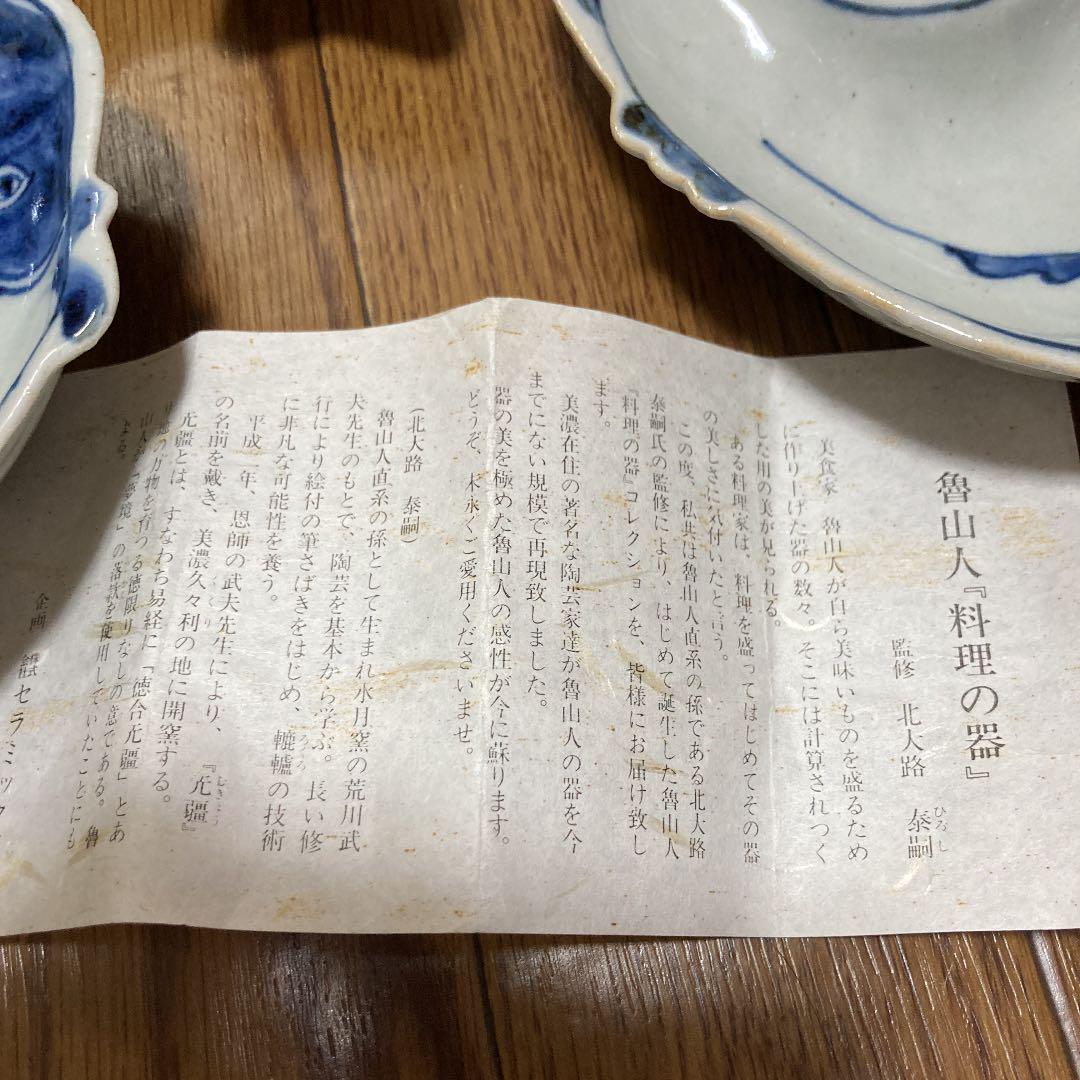 魯山人『料理の器』
監修　北大路　泰嗣
ひろし
美食家　魯山人が自ら美味いものを盛るため
に作り上げた器の数々。そこには計算されつく
した用の美が見られる。
ある料理家は、料理を盛ってはじめてその器
の美しさに気付いたと言う。
この度、私共は魯山人直系の孫である北大路
泰嗣氏の監修により、はじめて誕生した魯山人
『料理の器』コレクションを、皆様にお届け致し
ます。
美濃在住の著名な陶芸家達が魯山人の器を今
までにない規模で再現致しました。
器の美を極めた魯山人の感性が今に蘇ります。
どうぞ、末永くご愛用くださいませ。
(北大路　泰嗣)
魯山人直系の孫として生まれ水月窯の荒川武
夫先生のもとで、陶芸を基本から学ぶ。長い修
行により絵付の筆さばきをはじめ、轆轤の技術
ろくろ
に非凡な可能性を養う。
平成二年、恩師の武夫先生により、『无疆』
むきょう
の名前を戴き、美濃久々利の地に開窯する。
くくり
无疆とは、すなわち易経に「徳合无疆」とあ
の万物を育つる徳限りなしの意である。魯
山人が「夢境」の落款を使用していたことにも
よる。
企画　セラミック